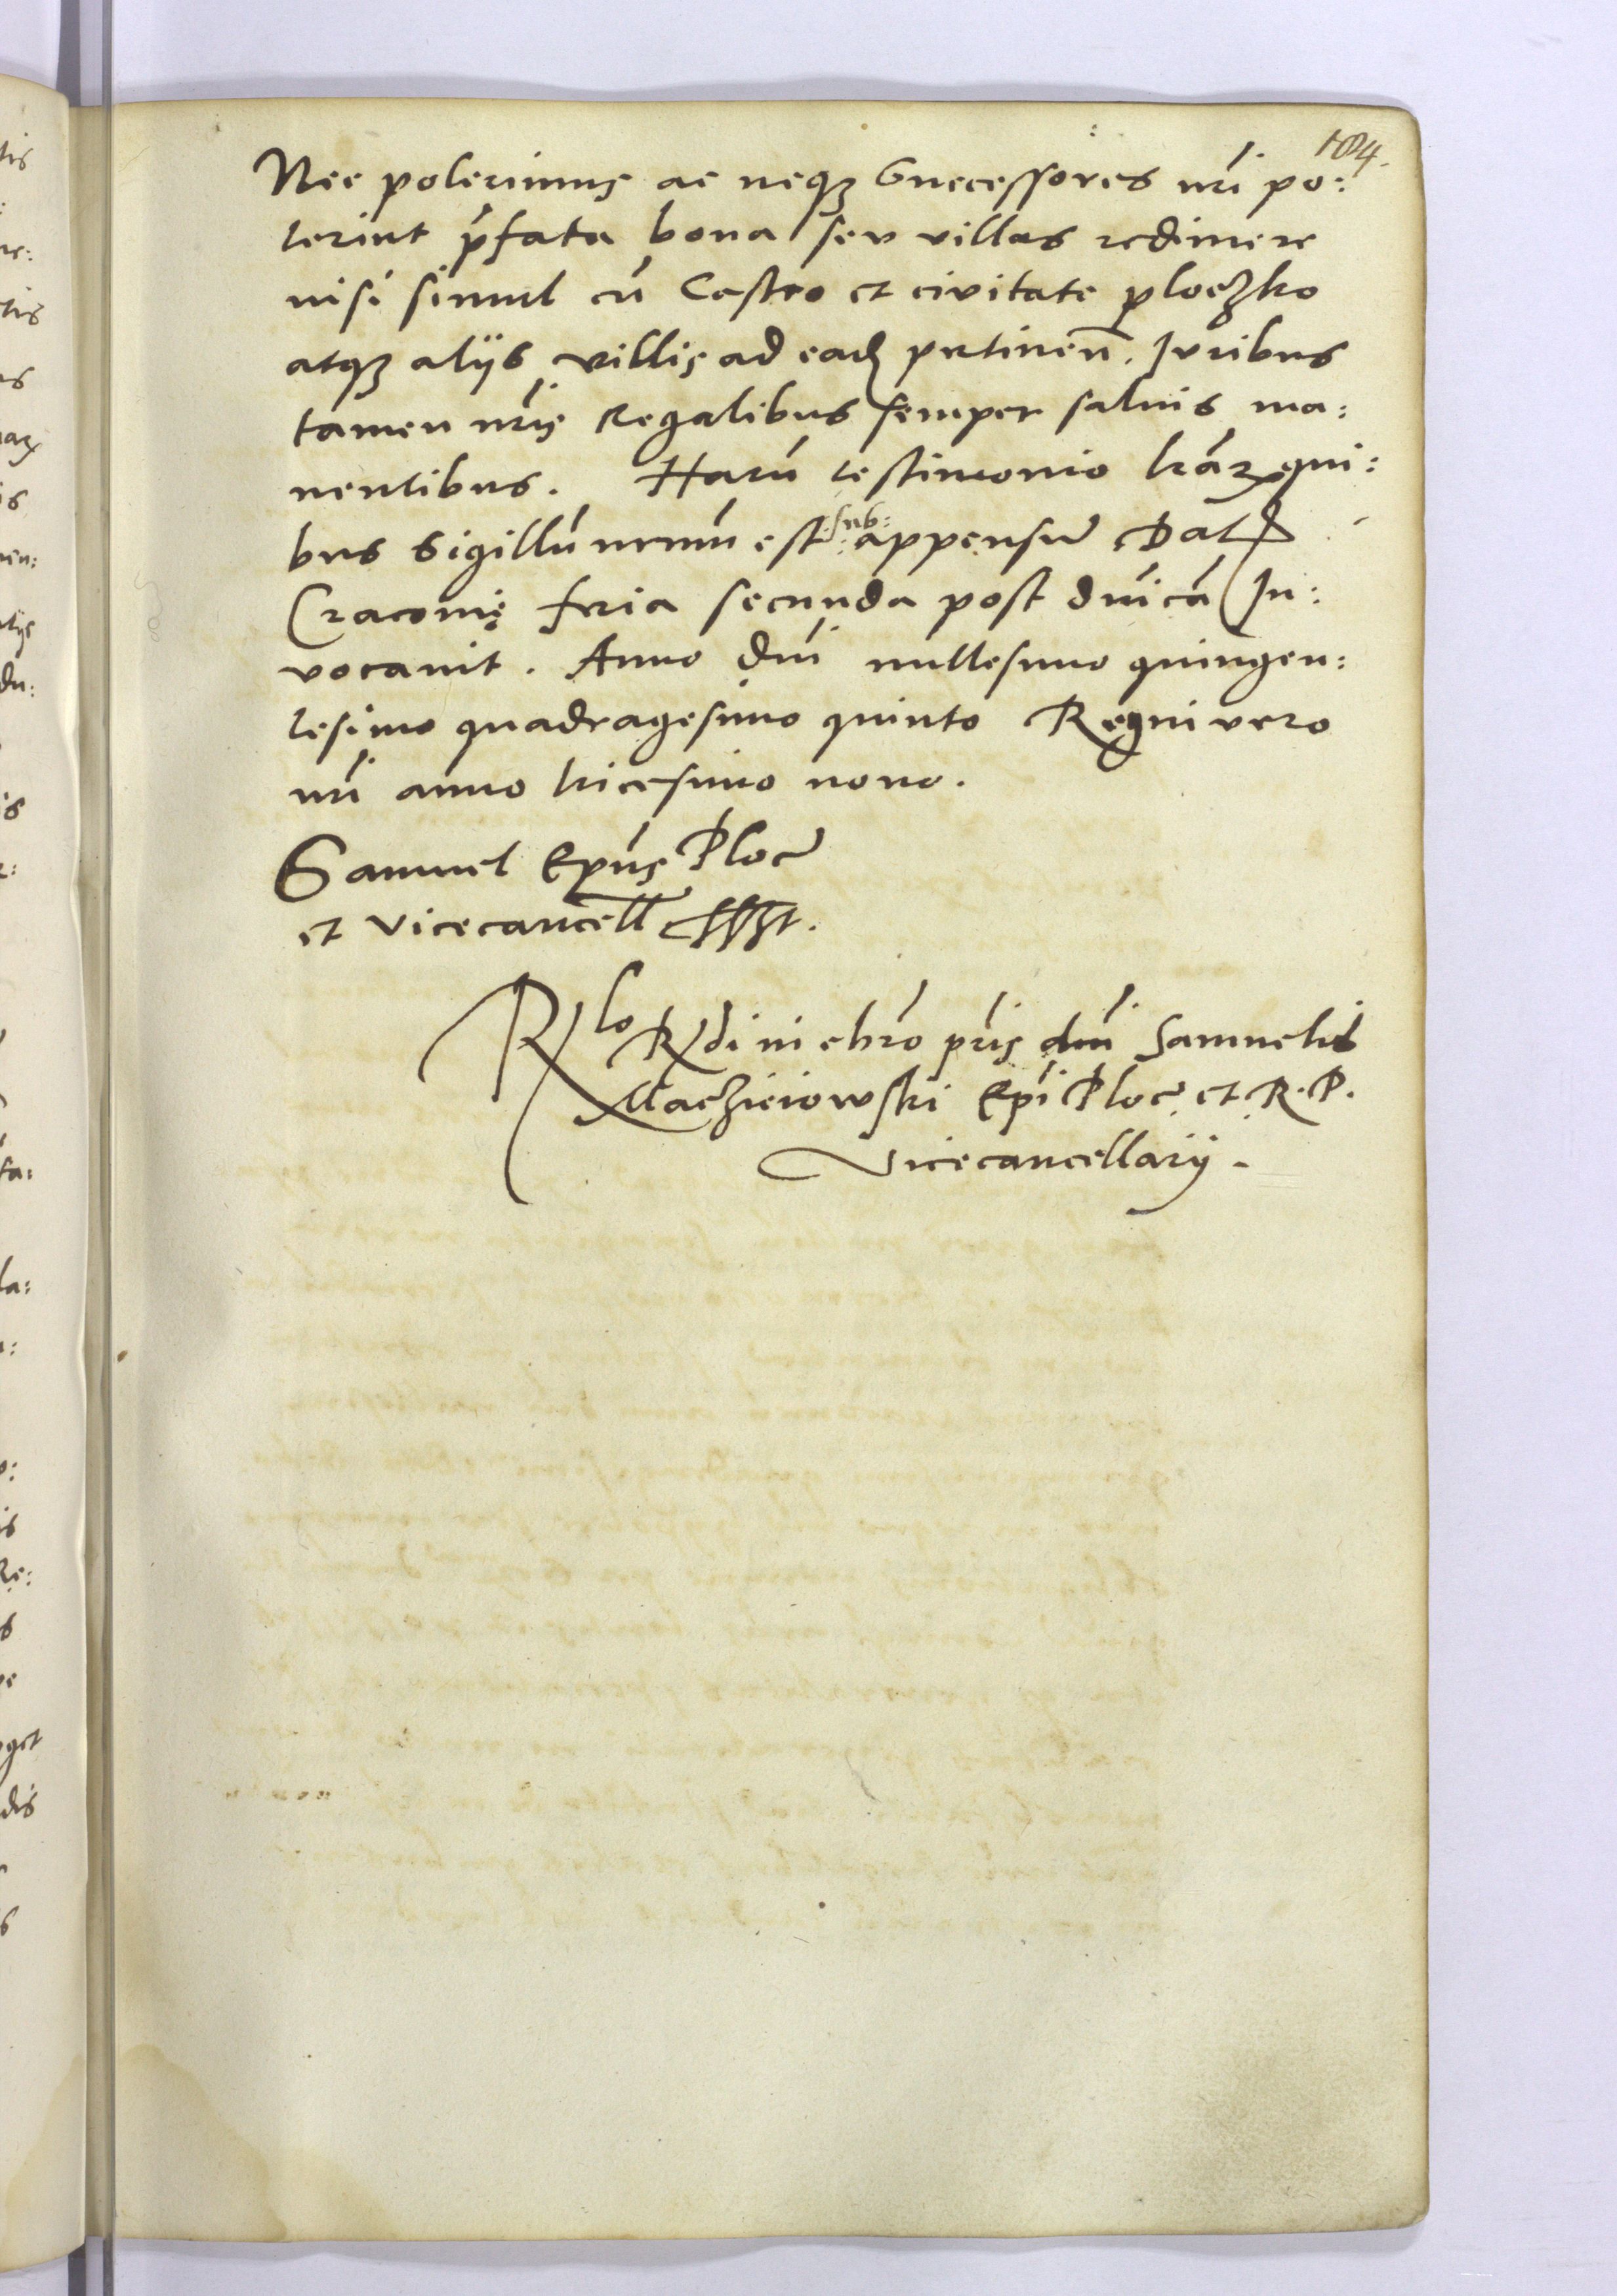 184.
Nec poterimus ac neq₃ Successores nrī po:
terint p̄fata bona seu villas redimere
nisi simul cū Castro et civitate ploczko
atq₃ alijs villis ad eadē ptinen̄. Juribus
tamen nrīs Regalibus semper salvis ma:
nentibus. Harū testimonio lrāꝝ qui:
bus Sigillū nrum̄ est :sub: appensū Dat
Cracovię feria secunda post dnīcā In:
vocavit. Anno dnī millesimo quingen:
tesimo quadragesimo quinto Regni vero
nrī anno tricesimo nono.
Samuel Epūs Ploc̄
et Vicecancell̄ sspt.
Rlo Rdi in chrō prīs dnī Samuelis
Maczieiowski Epī Ploc̄. et R. P.
Vicecancellarij.